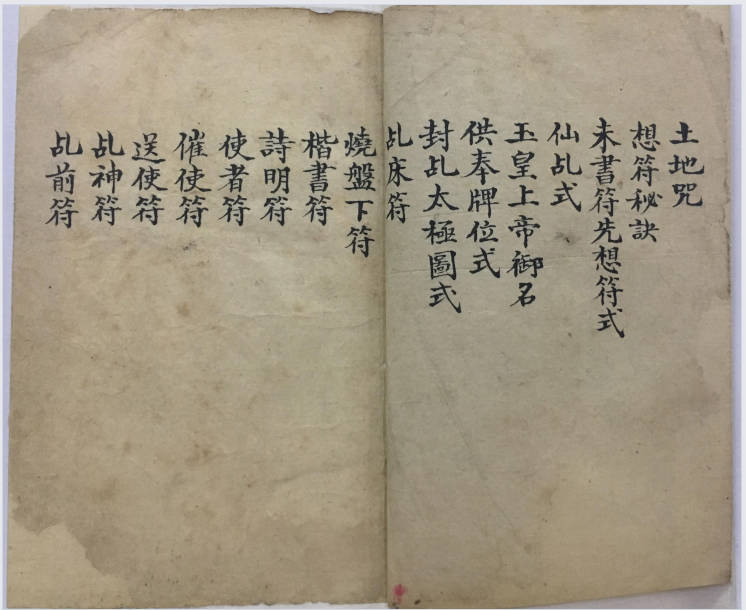 土地咒
想符秘訣
未書符先想符式
仙乩式
玉皇上帝御名
供奉牌位式
封乩太極圖式
乩床符
燒盤下符
楷書符
詩明符
使者符
催使符
送使符
乩神符
乩前符